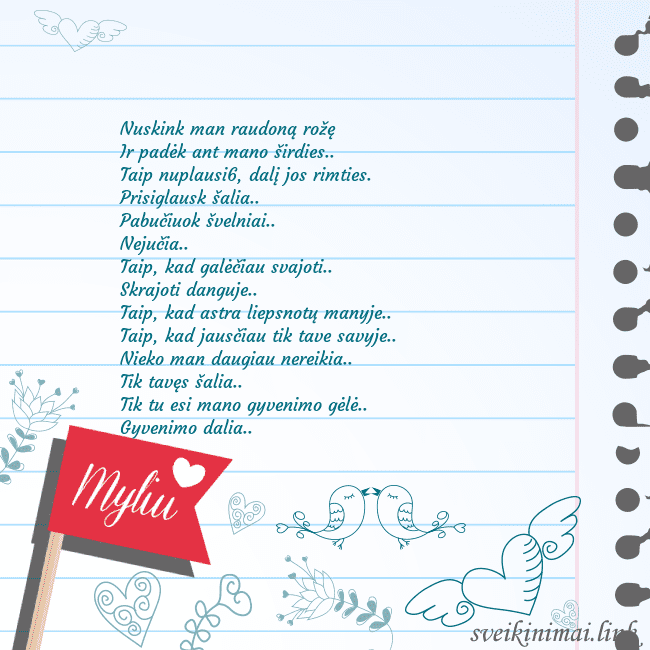 Nuskink man raudoną rožę
Ir padėk ant mano širdies..
Taip nuplausi6, dalį jos rimties.
Prisiglausk šalia..
Pabučiuok švelniai..
Nejučia..
Taip, kad galėčiau svajoti..
Skrajoti danguje..
Taip, kad astra liepsnotų manyje..
Taip, kad jausčiau tik tave savyje..
Nieko man daugiau nereikia..
Tik tavęs šalia..
Tik tu esi mano gyvenimo gėlė..
Gyvenimo dalia..
Myliu
sveikinimai.link